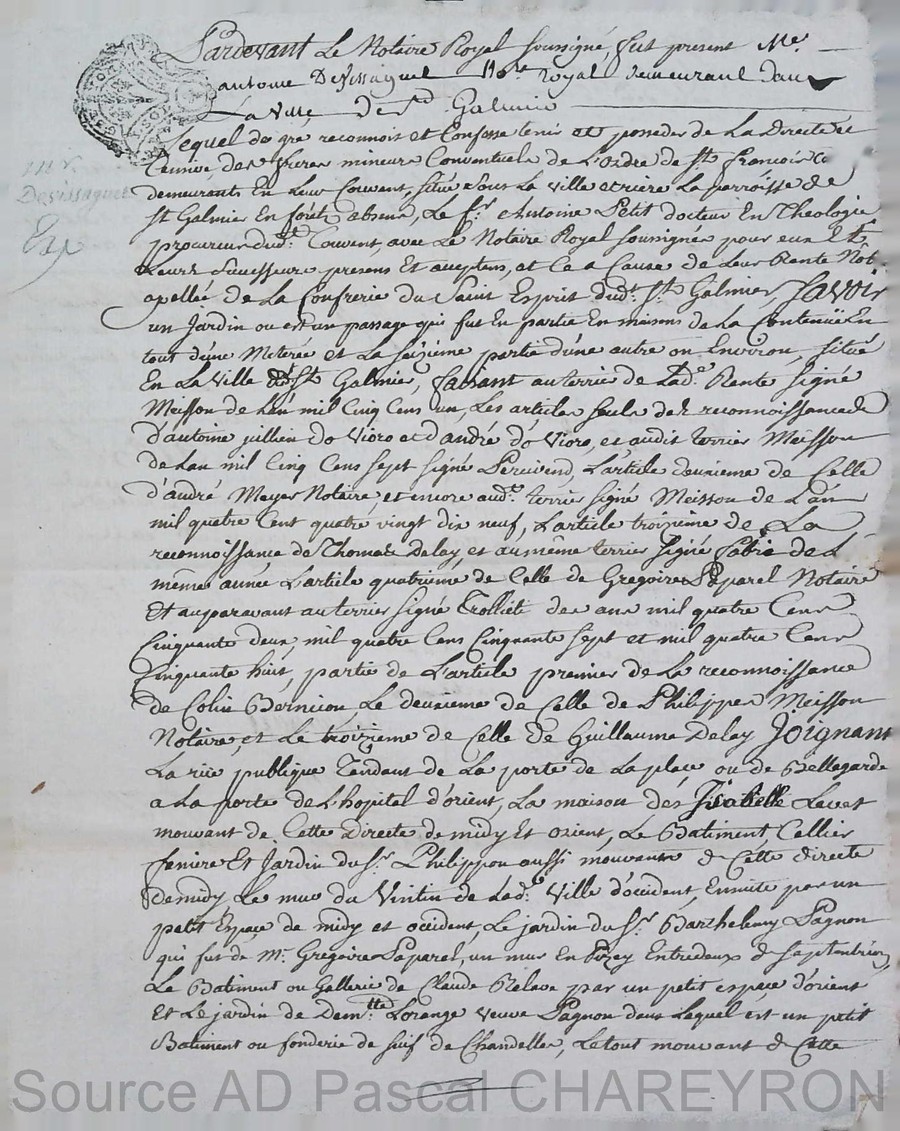 Pardevant Le Notaire Royal soussigné, fut present Me.
antoine Devissaguet Nore. royal demeurant dans
La ville de St. Galmier
Lequel de gre reconnoit et Confesse tenir et posseder de La Directe et
Censive des freres mineurs Conventuels de L'ordre de St. francois
demeurants En Leur Couvent, situé sous La ville et riere La parroisse de
St Galmier
mr.
Devissaguet
Le Sr. Antoine Petit docteur En Theologie
procureur dudt. Couvent, avec Le Notaire Royal soussigné pour eux Et
Leurs successeurs presens Et acceptens, et Ce a Cause de Leur Rente Nob.
apellée de La Confrerie du Saint Esprit dudt. St. Galmier, Savoir
un Jardin ou est un passage qui fut En partie En maisons de La Contenüe En
tout d'une Meterée et La seizieme partie d'une autre ou Environ, situé
En La ville de St Galmier, faisant au terrier de Lade. Rente signé
Meisson de L'an mil Cinq Cens un, Les articles seuls des reconnoissances
d'antoine jullien do Vioro et d'andré do Vioro, et audit terrier Meisson
de Lan mil Cinq Cens sept signé L'article deuxieme de Celle
d'andré Mayer Notaire et encore audt. terrier signé Meisson de L'an
mil quatre Cent quatre vingt dix neuf, L'article troizieme de La
reconnoissance de Thomas Delay, et au même terrier signé de La
même année L'article quatrieme de Celle de Gregoire Paparel Notaire
Et auparavant au terrier signé Trolliet des ans mil quatre Cens
Cinquante deux, mil quatre Cens Cinquante sept et mil quatre Cens
Cinquante huit, partie de L'article premier de La reconnoissance
de Colin Bernicon, Le deuxieme de Celle de Philippes Meisson
Notaire, et Le troizieme de Celle de Guillaume Delay Joignant
La rüe publique Tendant de La porte de La place ou de Bellegarde
a La porte de L'hopital d'orient, La maison des Isabelle Levet
mouvant de Cette Directe de midy Et orient, Le Batiment Cellier
feniere Et Jardin du Sr. Philippon aussi mouvants de Cette directe
De midy Le mur du Vintin de Lade. Ville d'occident, Ensuite par un
petit Espace de midy et occident, Le jardin du Sr. Barthelemy Pagnon
qui fut de Mr. Gregoire Paparel, un mur En Pizey Entredeux de septentrion
Le Batiment ou Gallerie de Claude Relave par un petit espace d'orient
Et Le jardin de Demlle. Lorange veuve Pagnon dans Lequel est un petit
Batiment ou fonderie de suif de Chandelles, Le tout mouvant de Cette
Source AD Pascal CHAREYRON